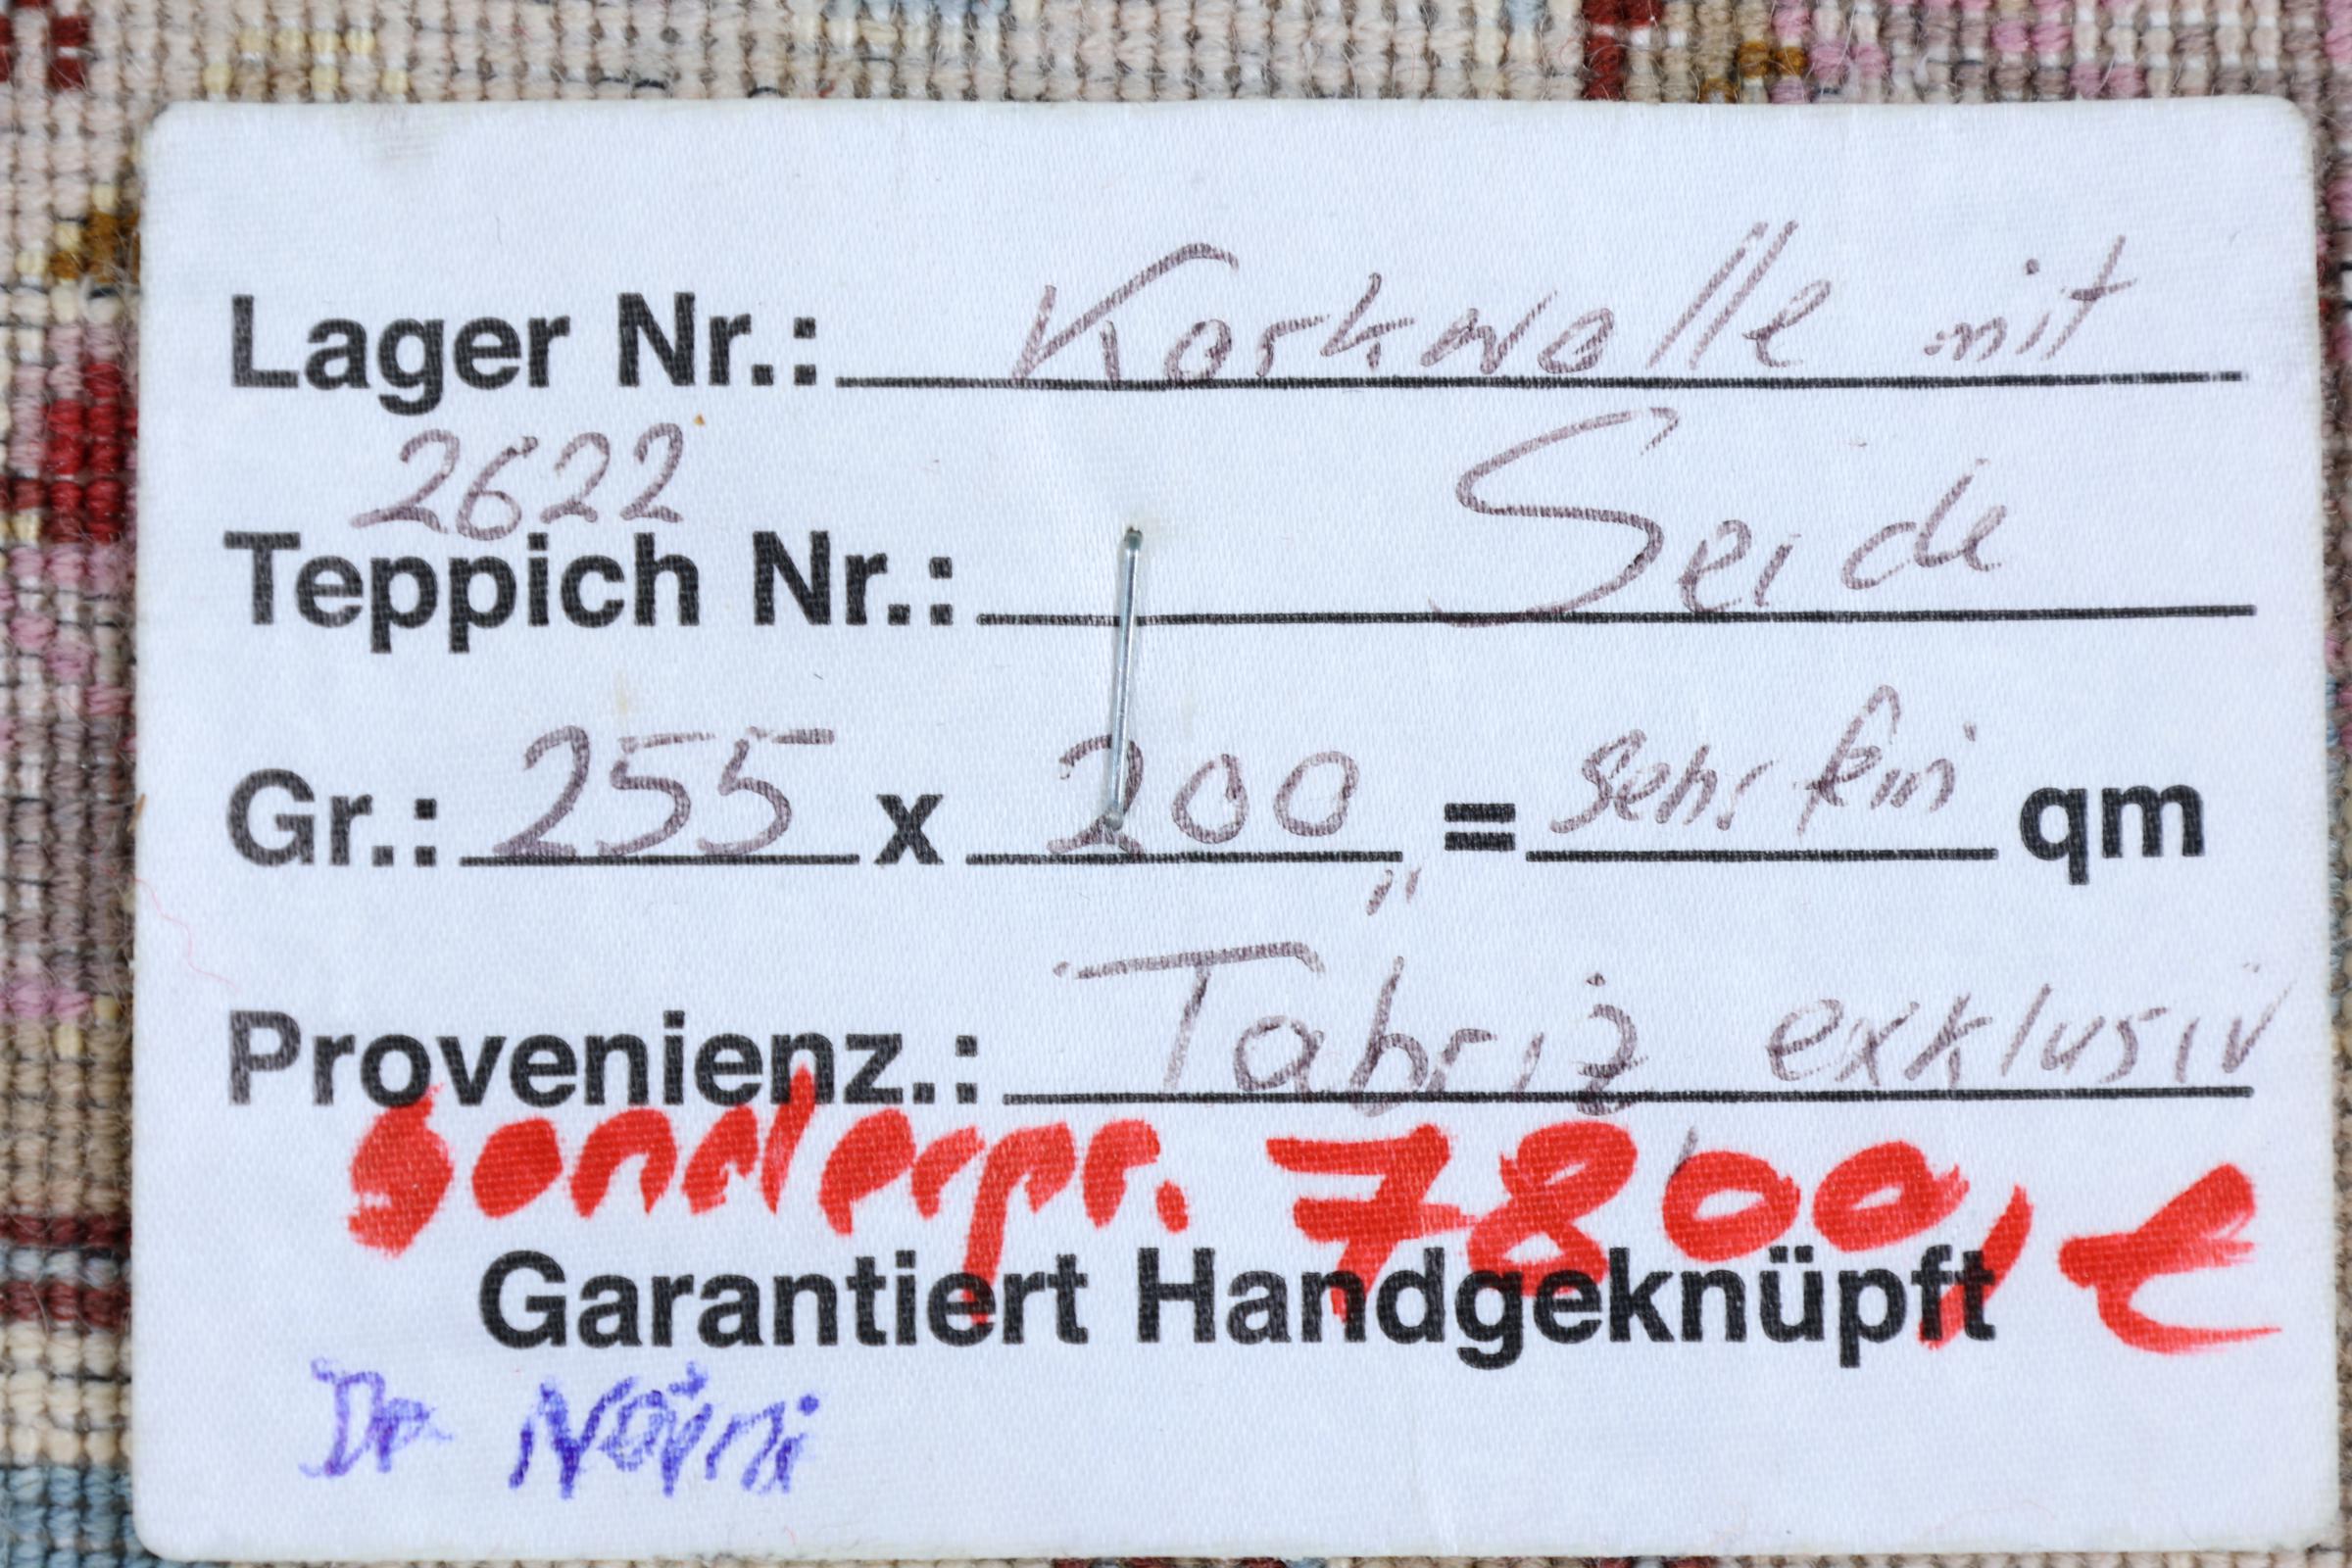 Lager Nr.: Korkwolle mit
2622
Teppich Nr.: Seide
Gr.: 255 x 200 = sehr fein qm
Provenienz.: Täbriz exklusiv
sonderpr. 7800,€
Garantiert Handgeknüpft
Dr